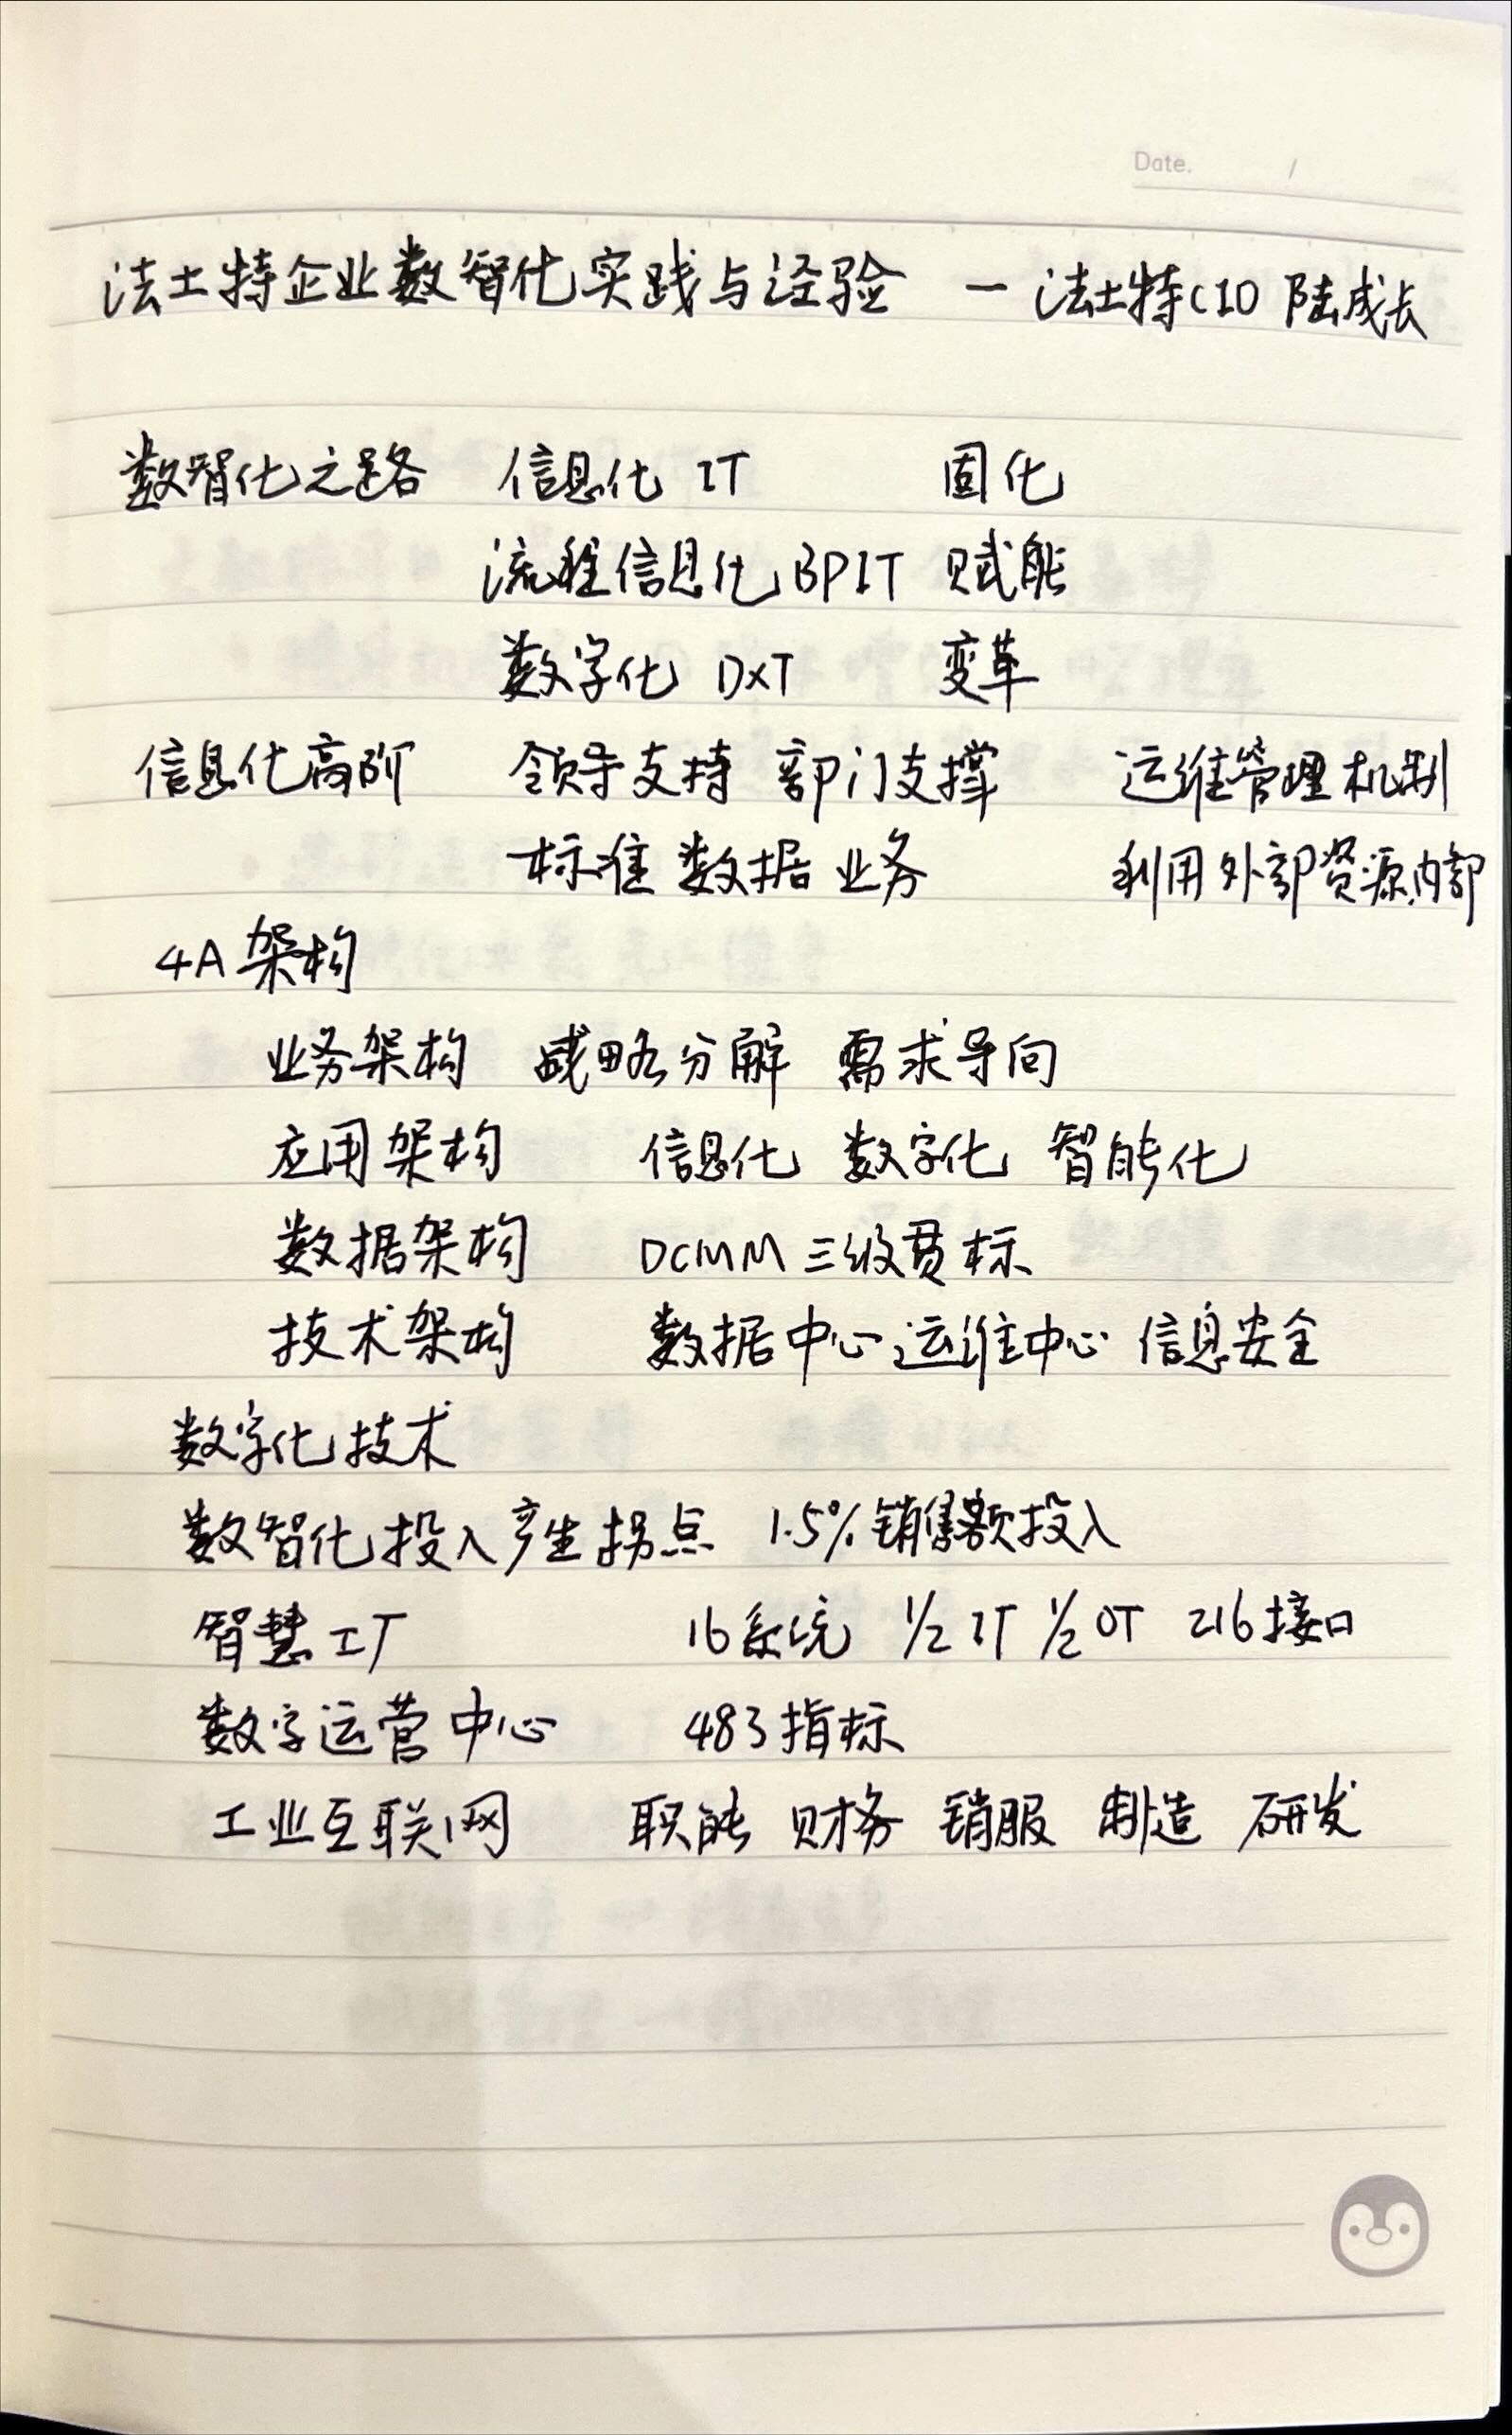 Date. /
法士特企业数智化实践与经验 — 法士特CIO 陆成长
数智化之路 信息化 IT 固化
流程信息化 BPIT 赋能
数字化 DXT 变革
信息化高阶 领导支持 部门支撑 运维管理机制
标准 数据 业务 利用外部资源,内部
4A架构
业务架构 战略分解 需求导向
应用架构 信息化 数字化 智能化
数据架构 DCMM 三级贯标
技术架构 数据中心 运维中心 信息安全
数字化技术
数智化投入产生拐点 1.5%销售额投入
智慧工厂 16系统 1/2 IT 1/2 OT 216接口
数字运营中心 483指标
工业互联网 职能 财务 销服 制造 研发